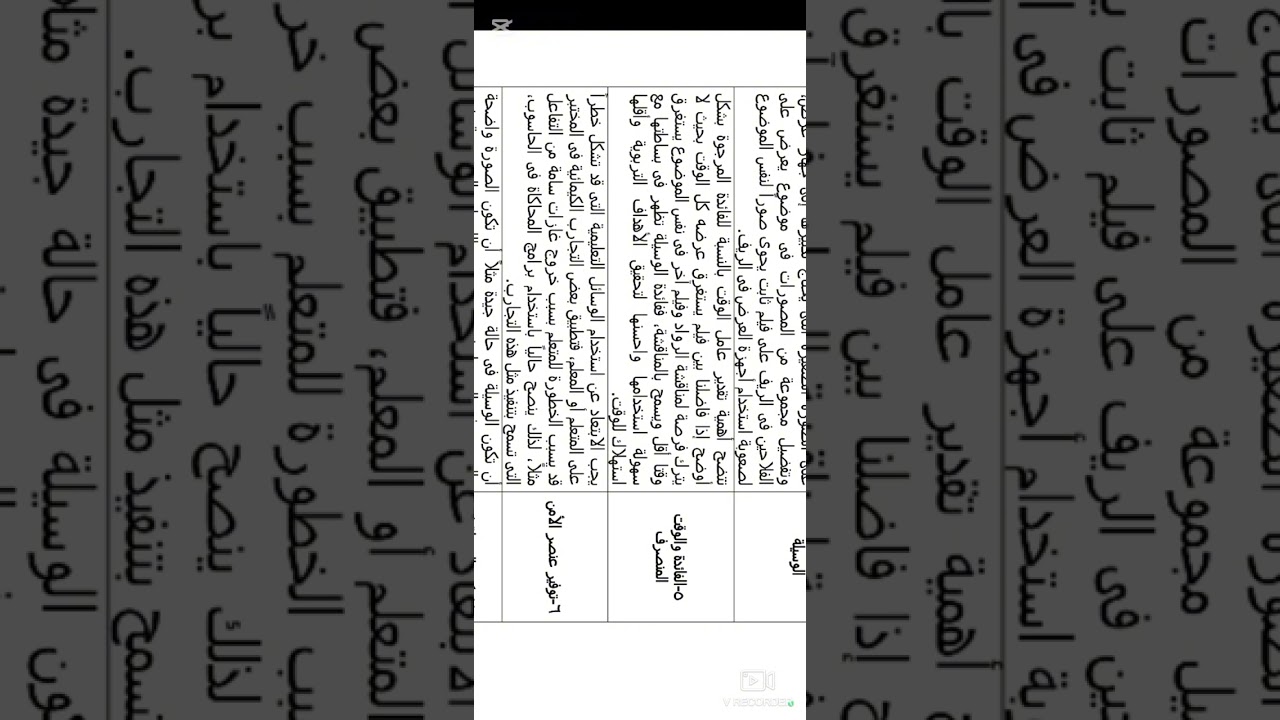 الوسيلة
وتفضيل مجموعة من المصورات فى موضوع يعرض على
الفلاحين فى الريف على فيلم ثابت يحوى صوراً لنفس الموضوع
لصعوبة استخدام أجهزة العرض فى الريف.
٥-الفائدة والوقت
المنصرف
تتضح أهمية تقدير عامل الوقت بالنسبة للفائدة المرجوة بشكل
أوضح إذا فاضلنا بين فيلم يستغرق عرضه كل الوقت بحيث لا
يترك فرصة لمناقشة الرواد وفيلم آخر فى نفس الموضوع يستغرق
وقتا أقل ويسمح بالمناقشة، ففائدة الوسيلة تظهر فى بساطتها مع
سهولة استخدامها واحسنها لتحقيق الأهداف التربوية وأقلها
استهلاك للوقت.
٦-توفير عنصر الأمن
يجب الابتعاد عن استخدام الوسائل التعليمية التى قد تشكل خطراً
على المتعلم أو المعلم، فتطبيق بعض التجارب الكيمائية فى المختبر
قد يسبب الخطورة للمتعلم بسبب خروج غازات سامة من التفاعل
مثلاً، لذلك ينصح حالياً باستخدام برامج المحاكاة فى الحاسوب،
التى تسمح بتنفيذ مثل هذه التجارب.
أن تكون الوسيلة فى حالة جيدة مثلاً أن تكون الصورة واضحة
V RECORDER